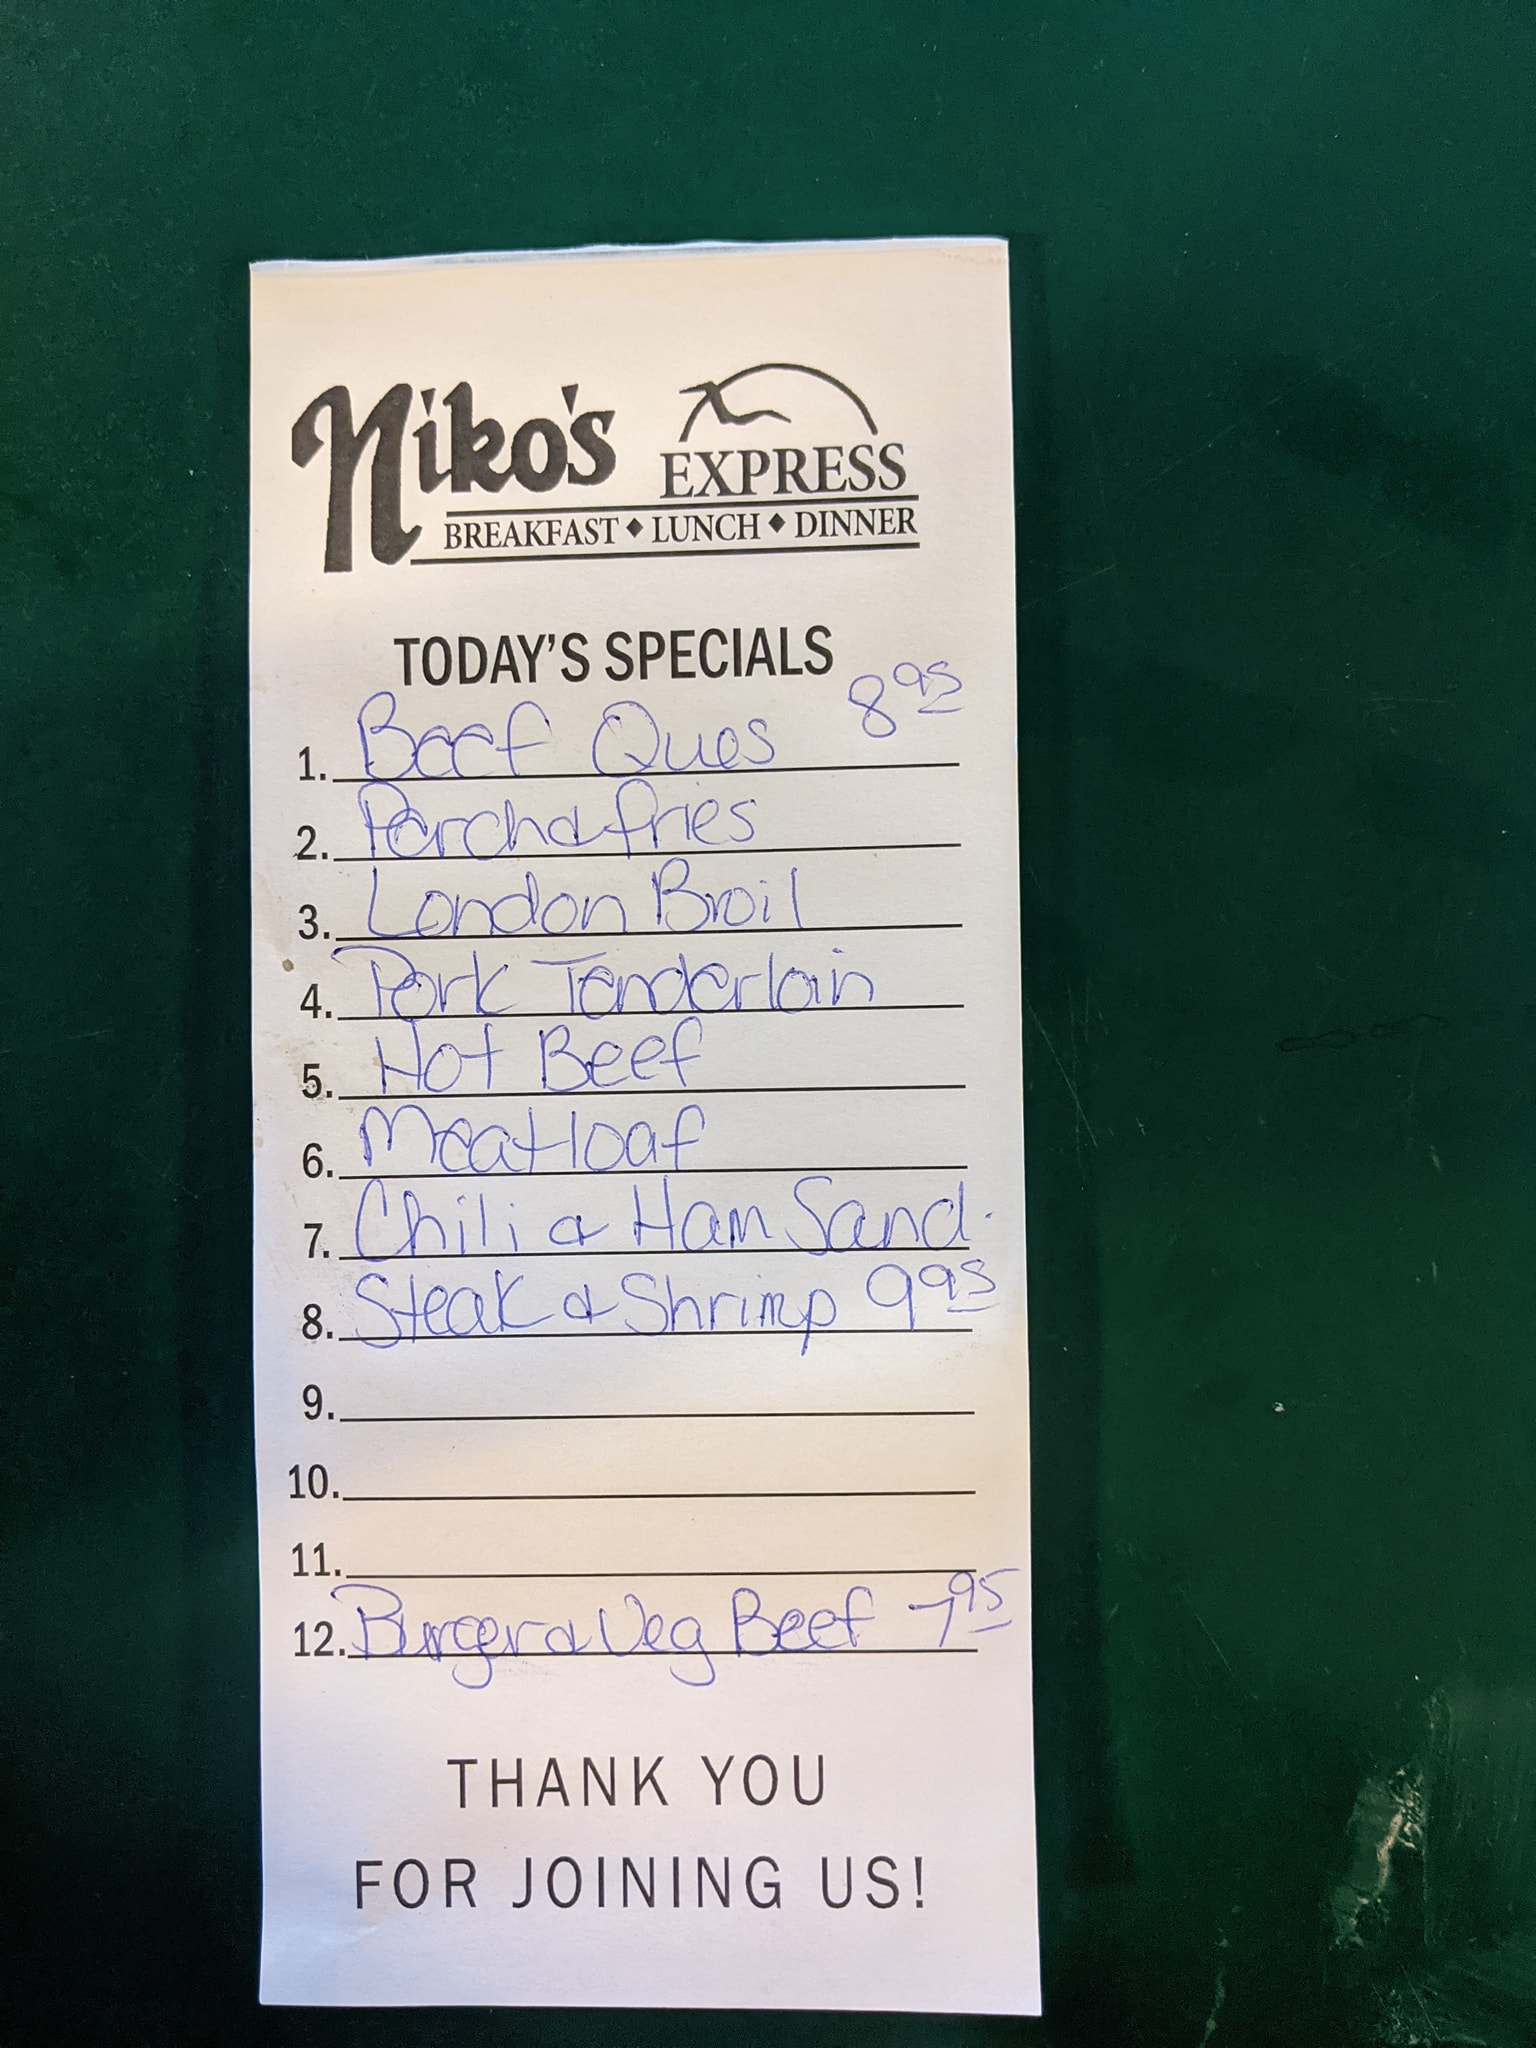 Niko's EXPRESS
BREAKFAST ♦ LUNCH ♦ DINNER
TODAY'S SPECIALS
1. Beef Ques 8 95
2. Perch & fries
3. London Broil
4. Pork Tenderloin
5. Hot Beef
6. Meatloaf
7. Chili & Ham Sand.
8. Steak & Shrimp 9 95
9.
10.
11.
12. Burger & Veg Beef 7 95
THANK YOU
FOR JOINING US!